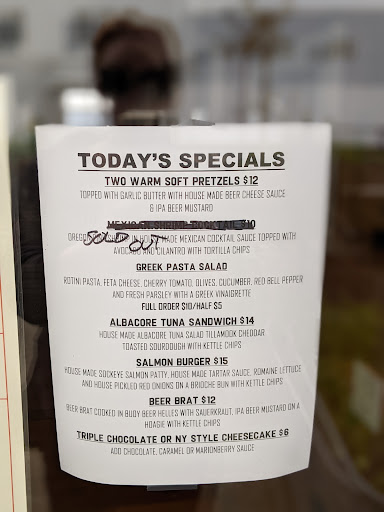 TODAY'S SPECIALS
TWO WARM SOFT PRETZELS $12
TOPPED WITH GARLIC BUTTER WITH HOUSE MADE BEER CHEESE SAUCE
& IPA BEER MUSTARD
COCKTAIL $10
SOLD OUT
MADE MEXICAN COCKTAIL SAUCE TOPPED WITH
AVOCADO AND CILANTRO WITH TORTILLA CHIPS
GREEK PASTA SALAD
ROTINI PASTA, FETA CHEESE, CHERRY TOMATO, OLIVES, CUCUMBER, RED BELL PEPPER
AND FRESH PARSLEY WITH A GREEK VINAIGRETTE
FULL ORDER $10/HALF $5
ALBACORE TUNA SANDWICH $14
HOUSE MADE ALBACORE TUNA SALAD TILLAMOOK CHEDDAR
TOASTED SOURDOUGH WITH KETTLE CHIPS
SALMON BURGER $15
HOUSE MADE SOCKEYE SALMON PATTY, HOUSE MADE TARTAR SAUCE, ROMAINE LETTUCE
AND HOUSE PICKLED RED ONIONS ON A BRIOCHE BUN WITH KETTLE CHIPS
BEER BRAT $12
BEER BRAT COOKED IN BUOY BEER HELLES WITH SAUERKRAUT, IPA BEER MUSTARD ON A
HOAGIE WITH KETTLE CHIPS
TRIPLE CHOCOLATE OR NY STYLE CHEESECAKE $6
ADD CHOCOLATE, CARAMEL OR MARIONBERRY SAUCE